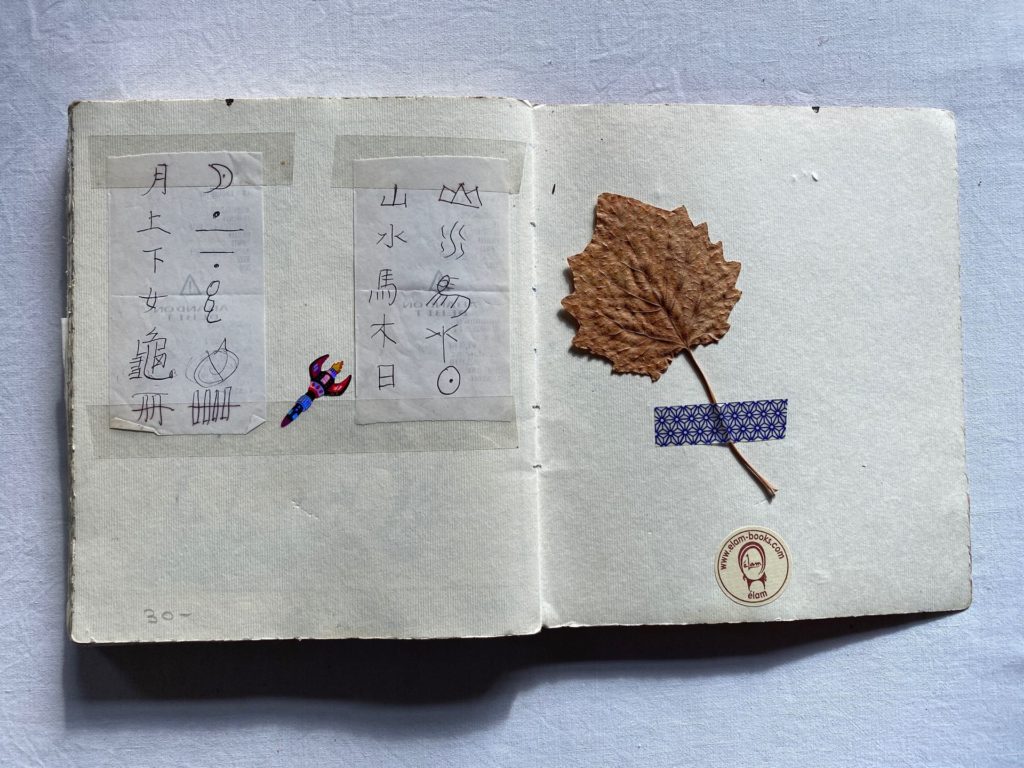 月
上
下
女
龜
冊
山
水
馬
木
日
30-
www.elam-books.com
élam
élam